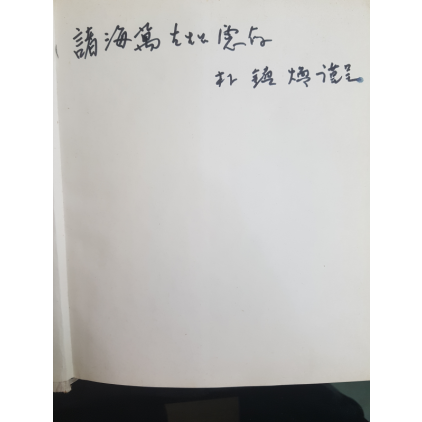 諸海篤先生惠存
朴 謹呈